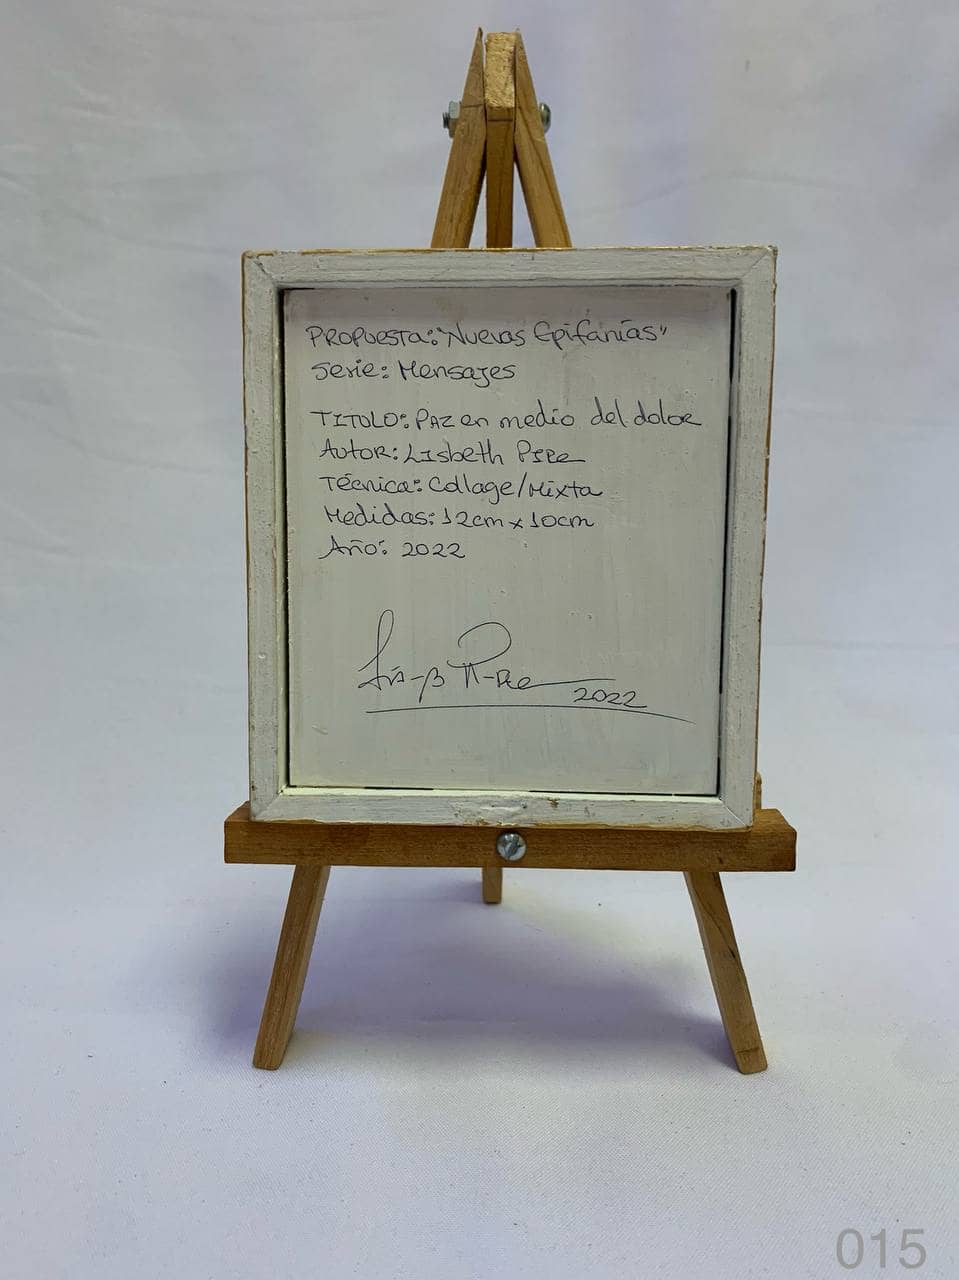 PROPUESTA: "Nuevas Epifanías"
Serie: Mensajes
TITULO: PAZ en medio del dolor
Autor: Lisbeth Pire
Técnica: Collage/Mixta
Medidas: 12cm x 10cm
Año: 2022
2022
015